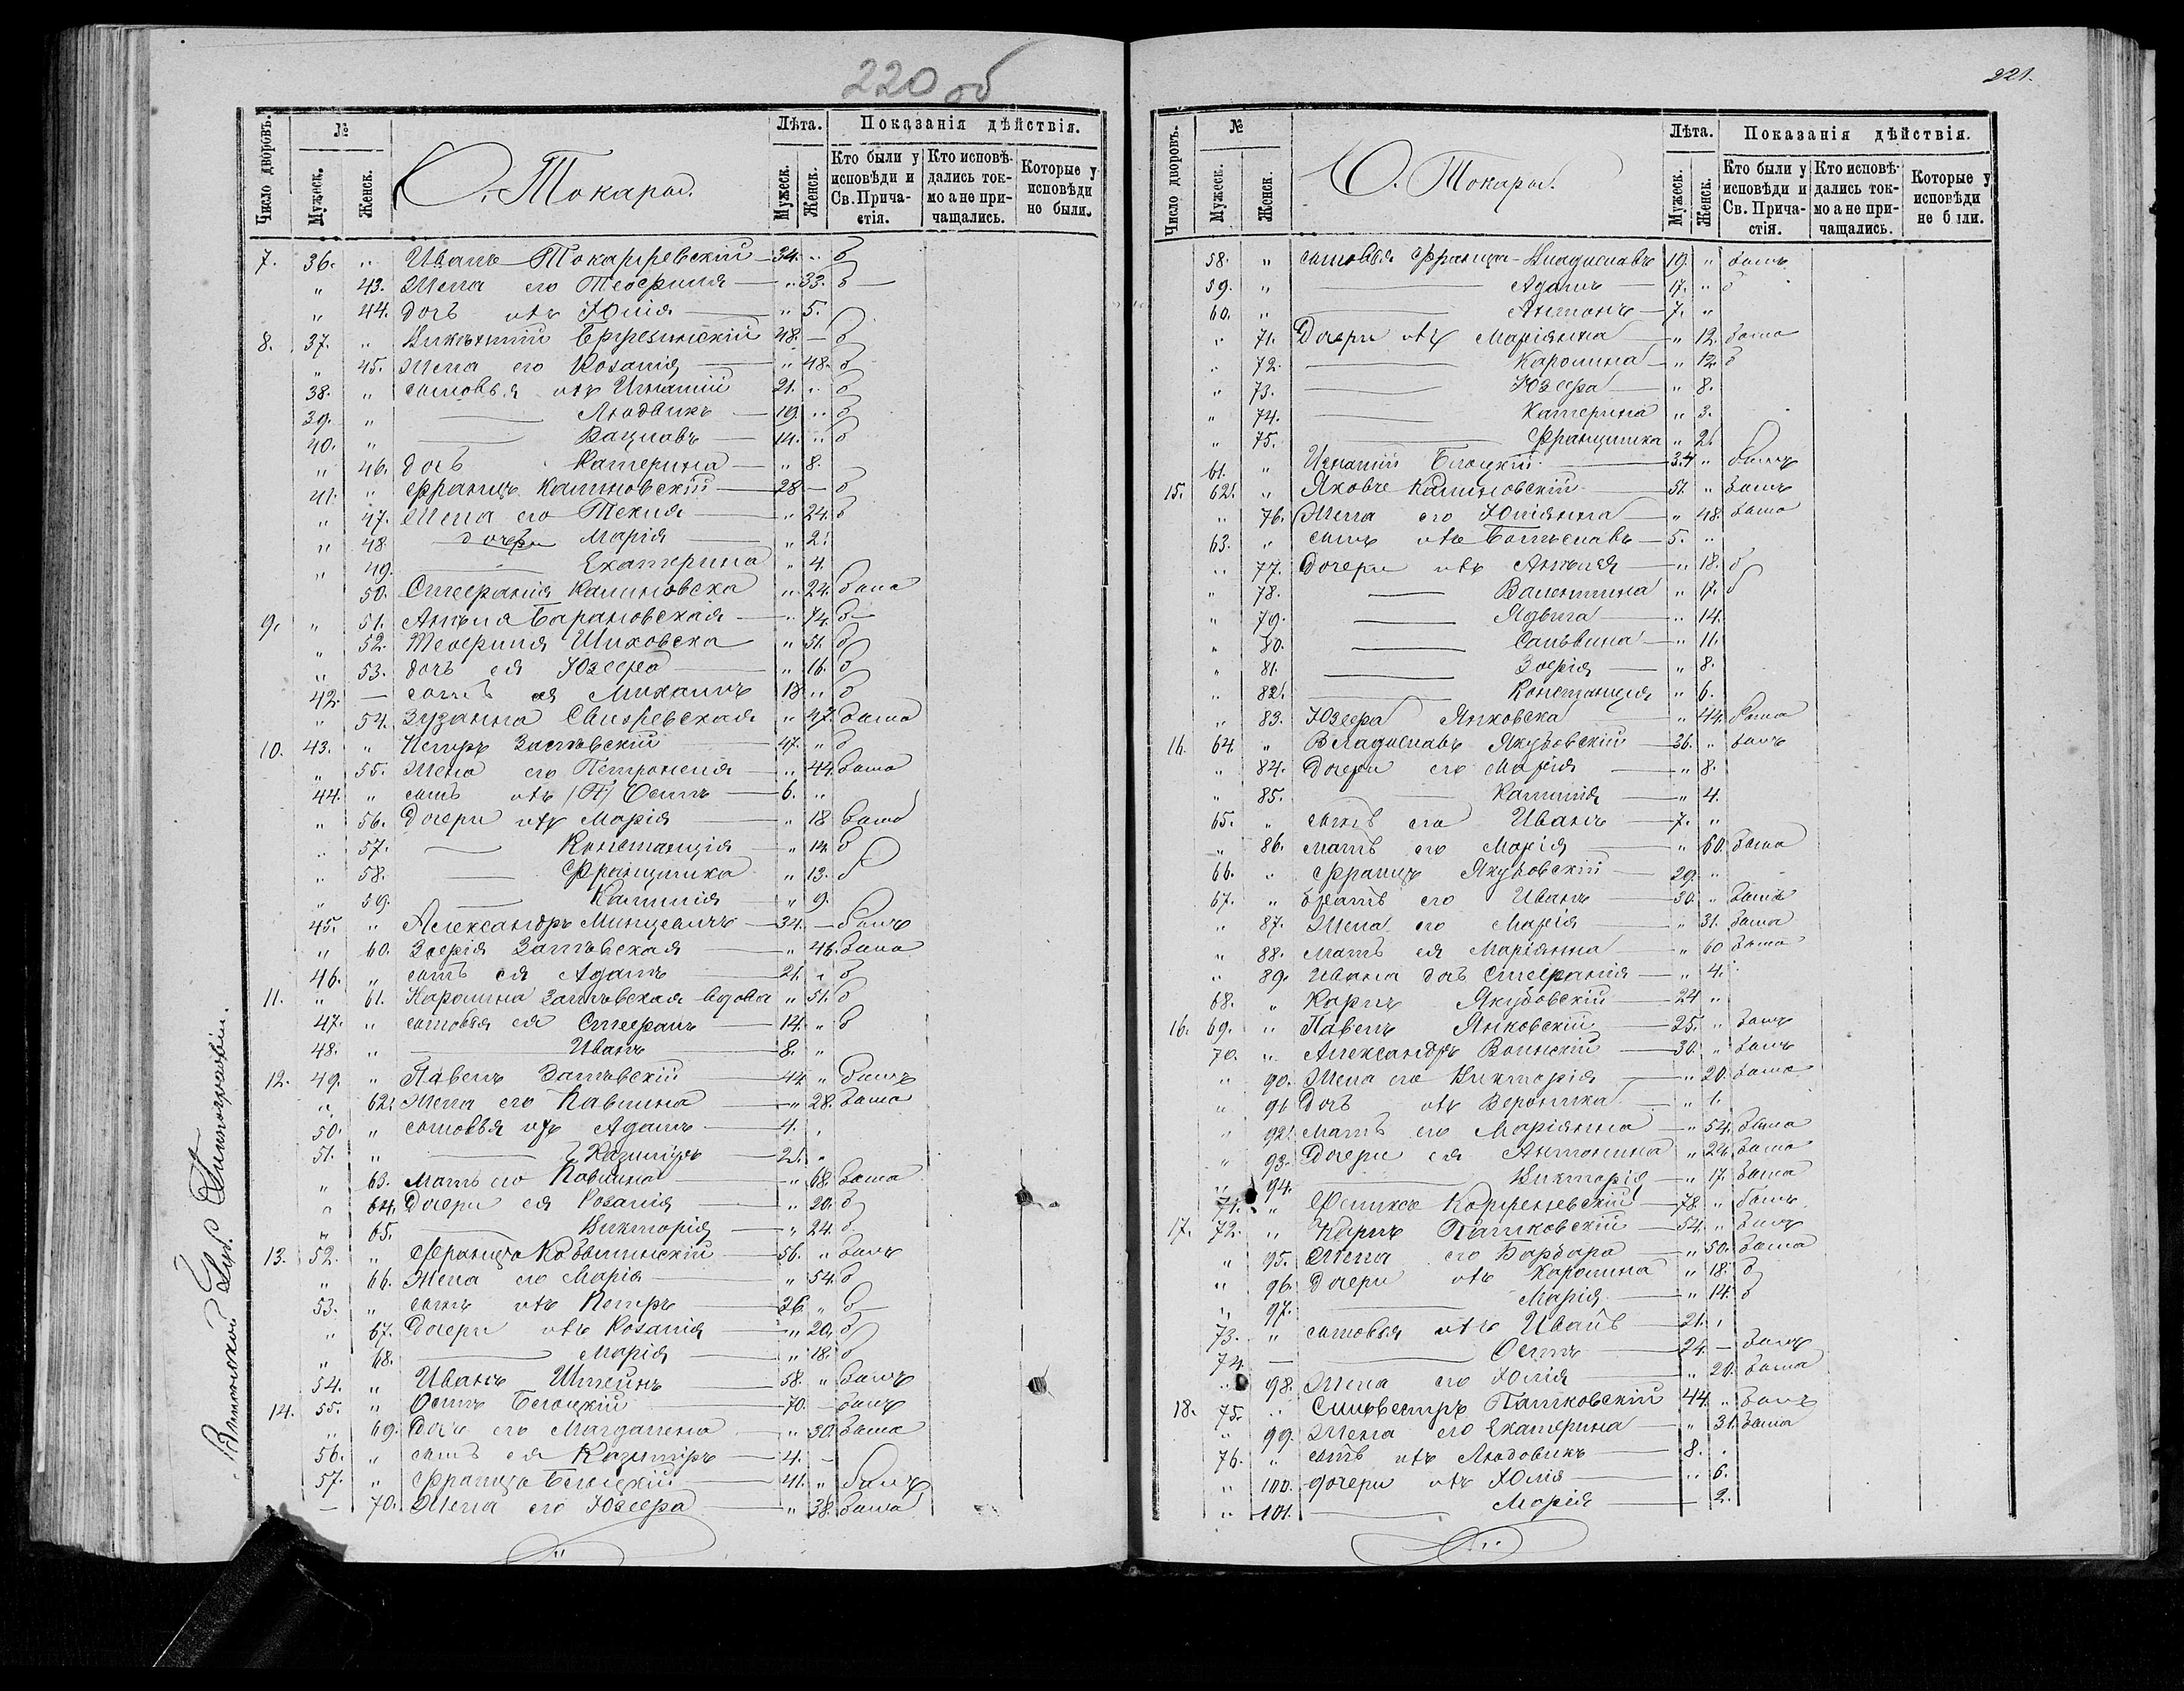 220 об
Число дворовъ. № Мужеск. Женск. О. Токары. Лѣта. Мужеск. Женск. Показанія дѣйствія. Кто были у исповѣди и Св. Причастія. Кто исповѣдались токмо а не причащались. Которые у исповѣди не были.
7. 36. " Иванъ Токаржевскій 34. " б
" 43. Жена его Теофиля " 33. б
" 44. дочь ихъ Юлія " 5.
8. 37. " Викентій Бржезинскій 48. — б
" 45. Жена его Розалія " 48. б
38. " сыновья ихъ Игнатій 21. " б
39. " Людвикъ 19. " б
40. " Вацлавъ 14. " б
" 46. дочь Катерина " 8.
41. " Францъ Калиновскій 28 — б
" 47. Жена его Текля " 24. б
" 48. дочери Марія " 2.
" 49. Екатерина " 4.
50. Стефанія Калиновска " 24. была
9. " 51. Анеля Барановская " 74. б
" 52. Теофиля " 51. б
" 53. дочь ея Юзефа " 16. б
42. — сынъ ея Михаилъ 18 " б
" 54. Зузанна " 47. была
10. 43. " Петръ 47. " б
" 55. Жена его Петронеля " 44. была
44. " сынъ ихъ Осипъ 6. "
" 56. Дочери ихъ Марія " 18 была
" 57. Констанція " 14. б
" 58. Францишка " 13. б
" 59. Камилія " 9.
45. " Александръ Минцевичъ 34. — былъ
" 60. Зофія " 46. была
46. " сынъ ея Адамъ 21. " б
11. " 61. Каролина вдова " 51. б
47. " сыновья ея Стефанъ 14. " б
48. " Иванъ 8. "
12. 49. " Павелъ 44 " былъ
" 62. Жена его Павлина " 28. была
50. " сыновья ихъ Адамъ 4. "
51. " Казиміръ 2. "
" 63. Мать его Павлина " 68. была
" 64. Дочери ея Розалія " 20. б
" 65. Викторія " 24. б.
13. 52. " Францъ Кобылинскій 56. " былъ
" 66. Жена его Марія " 54. б
53. " сынъ ихъ Петръ 26 " б
" 67. Дочери ихъ Розалія " 20. б
" 68. Марія " 18. б
54. " Иванъ Штейнъ 58. " былъ
14. 55. " Осипъ Белоцкій 70. — былъ
" 69. Дочь его Магдалена " 30. была
56. " сынъ ея Казиміръ 4. —
57. " Францъ Белоцкій 41. " былъ
— 70. Жена его Юзефа " 38. была
Виленской Губ. Типографіи.
221.
Число дворовъ. № Мужеск. Женск. О. Токары. Лѣта. Мужеск. Женск. Показанія дѣйствія. Кто были у исповѣди и Св. Причастія. Кто исповѣдались токмо а не причащались. Которые у исповѣди не были.
58. " сыновья Франца - Владиславъ 19. " былъ
59. " Адамъ 17. " б
60. " Антонъ 7. "
" 71. Дочери ихъ Маріянна " 12. была
" 72. Каролина " 12. б
" 73. Юзефа " 8.
" 74. Катерина " 3.
" 75. Францишка " 2.
61. " Игнатій Белоцкій 34 " былъ
15. 62. " Яковъ Калиновскій 51. " былъ
" 76. Жена его Юліянна " 48. была
63. " сынъ ихъ Болеславъ 5. "
" 77. Дочери ихъ Анеля " 18. б
" 78. Валентина " 17. б
" 79. Ядвига " 14.
" 80. Сальвина " 11.
" 81. Зофія " 8.
" 82. Констанція " 6.
" 83. Юзефа Янковска " 44. была
16. 64. " Владиславъ Якубовскій 36. " былъ
" 84. Дочери его Марія " 8.
" 85. Камилія " 4.
65. " сынъ его Иванъ 7. "
" 86. мать его Марія " 60. была
66. " Францъ Якубовскій 29. "
67. " братъ его Иванъ 30. " былъ
" 87. Жена его Марія " 31. была
" 88. мать ея Маріянна " 60 была
" 89. Ивана дочь Стефанія " 4.
68. " Карлъ Якубовскій 24 "
16. 69. " Павелъ Янковскій 25. " былъ
70. " Александръ Волнскій 30. " былъ
" 90. Жена его Викторія " 20. была
" 91 Дочь ихъ Вероника " 1.
" 92. мать его Маріянна " 54. была
" 93. Дочери ея Антонина " 22. была
" 94. Викторія " 17. была
71. " Феликсъ 78. " былъ
17. 72. " Карлъ Патковскій 54. " былъ
" 95. Жена его Барбара " 50. была
" 96. Дочери ихъ Каролина " 18. б
" 97. Марія " 14. б
73. " сыновья ихъ Иванъ 21. "
74. — Осипъ 24. — былъ
" 98. Жена его Юлія " 20. была
18. 75. " Сильвестръ Патковскій 44. " былъ
" 99. Жена его Екатерина " 31. была
76. " сынъ ихъ Людовикъ 8. "
" 100. дочери ихъ Юлія " 6.
" 101. Марія — 2.